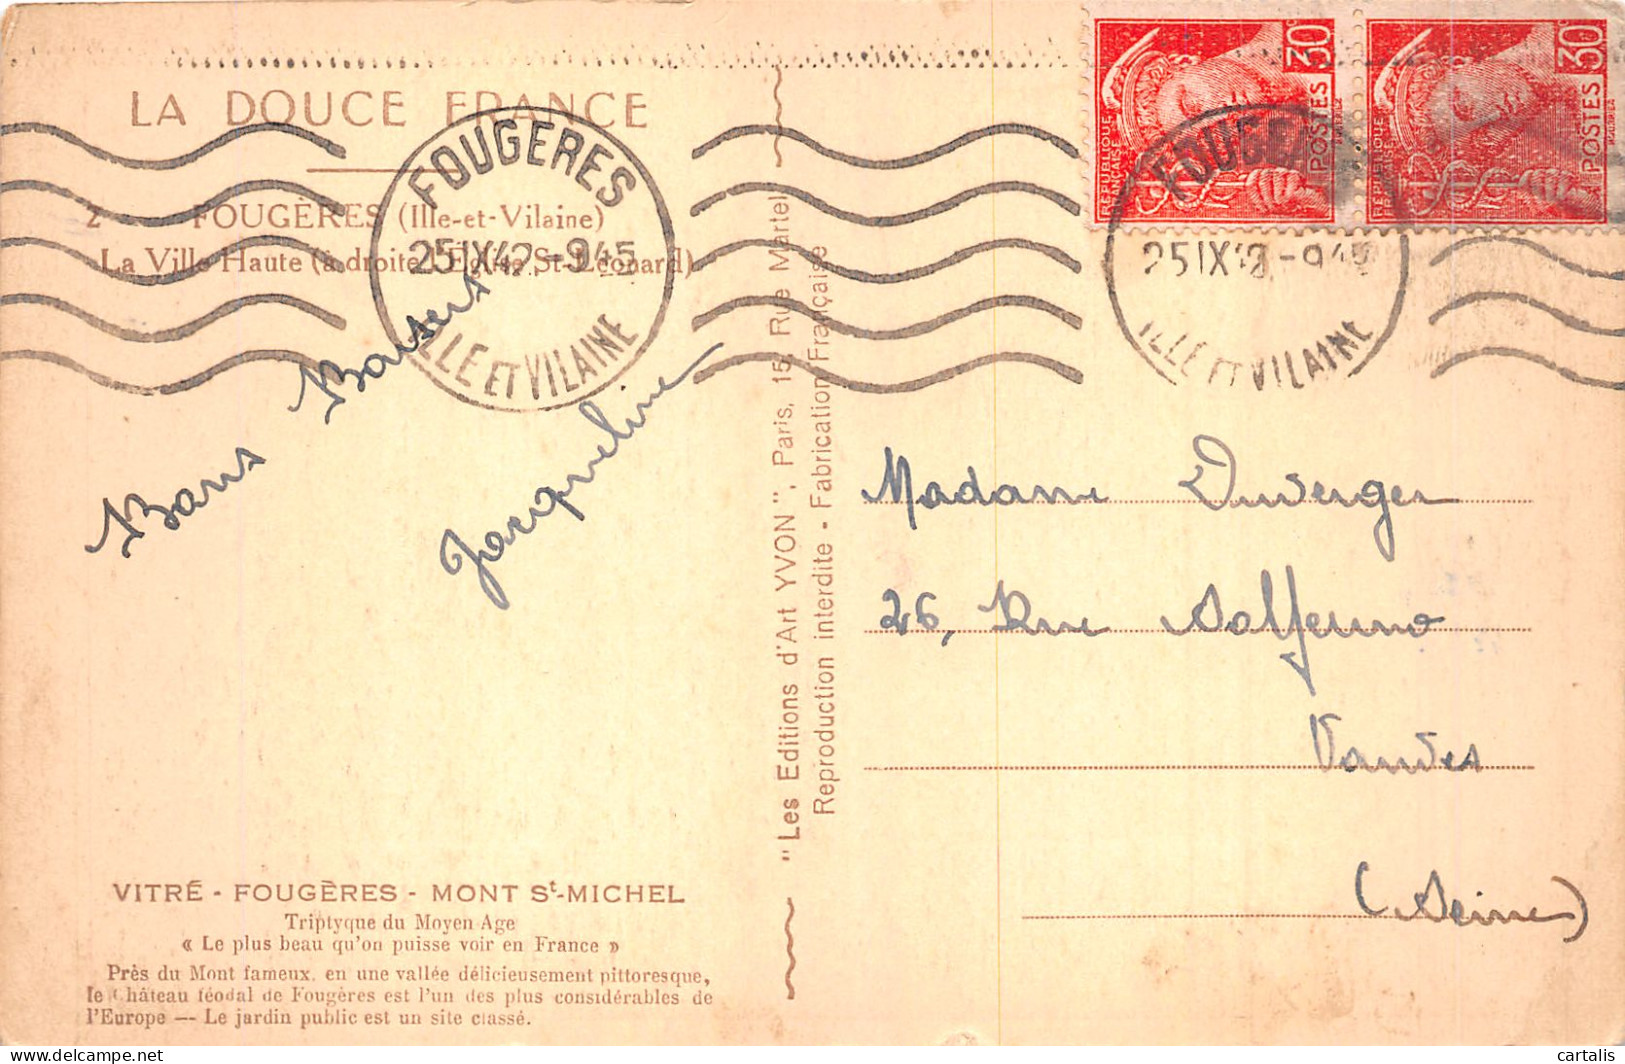 LA DOUCE FRANCE
2 - FOUGÈRES (Ille-et-Vilaine)
La Ville Haute (à droite l'Église St-Léonard)
FOUGERES
25 IX 42 - 9 45
ILLE ET VILAINE
Bons Baisers
Jacqueline
VITRÉ - FOUGÈRES - MONT St-MICHEL
Triptyque du Moyen Age
« Le plus beau qu'on puisse voir en France »
Près du Mont fameux, en une vallée délicieusement pittoresque,
le Château féodal de Fougères est l'un des plus considérables de
l'Europe — Le jardin public est un site classé.
"Les Editions d'Art YVON", Paris, 15, Rue Martel
Reproduction interdite - Fabrication Française
RÉPUBLIQUE
FRANÇAISE
30c
POSTES
RÉPUBLIQUE
FRANÇAISE
30c
POSTES
FOUGERES
25 IX 42 - 9 45
ILLE ET VILAINE
Madame Duverger
26, Rue Solferino
Vanves
(Seine)
cartalis